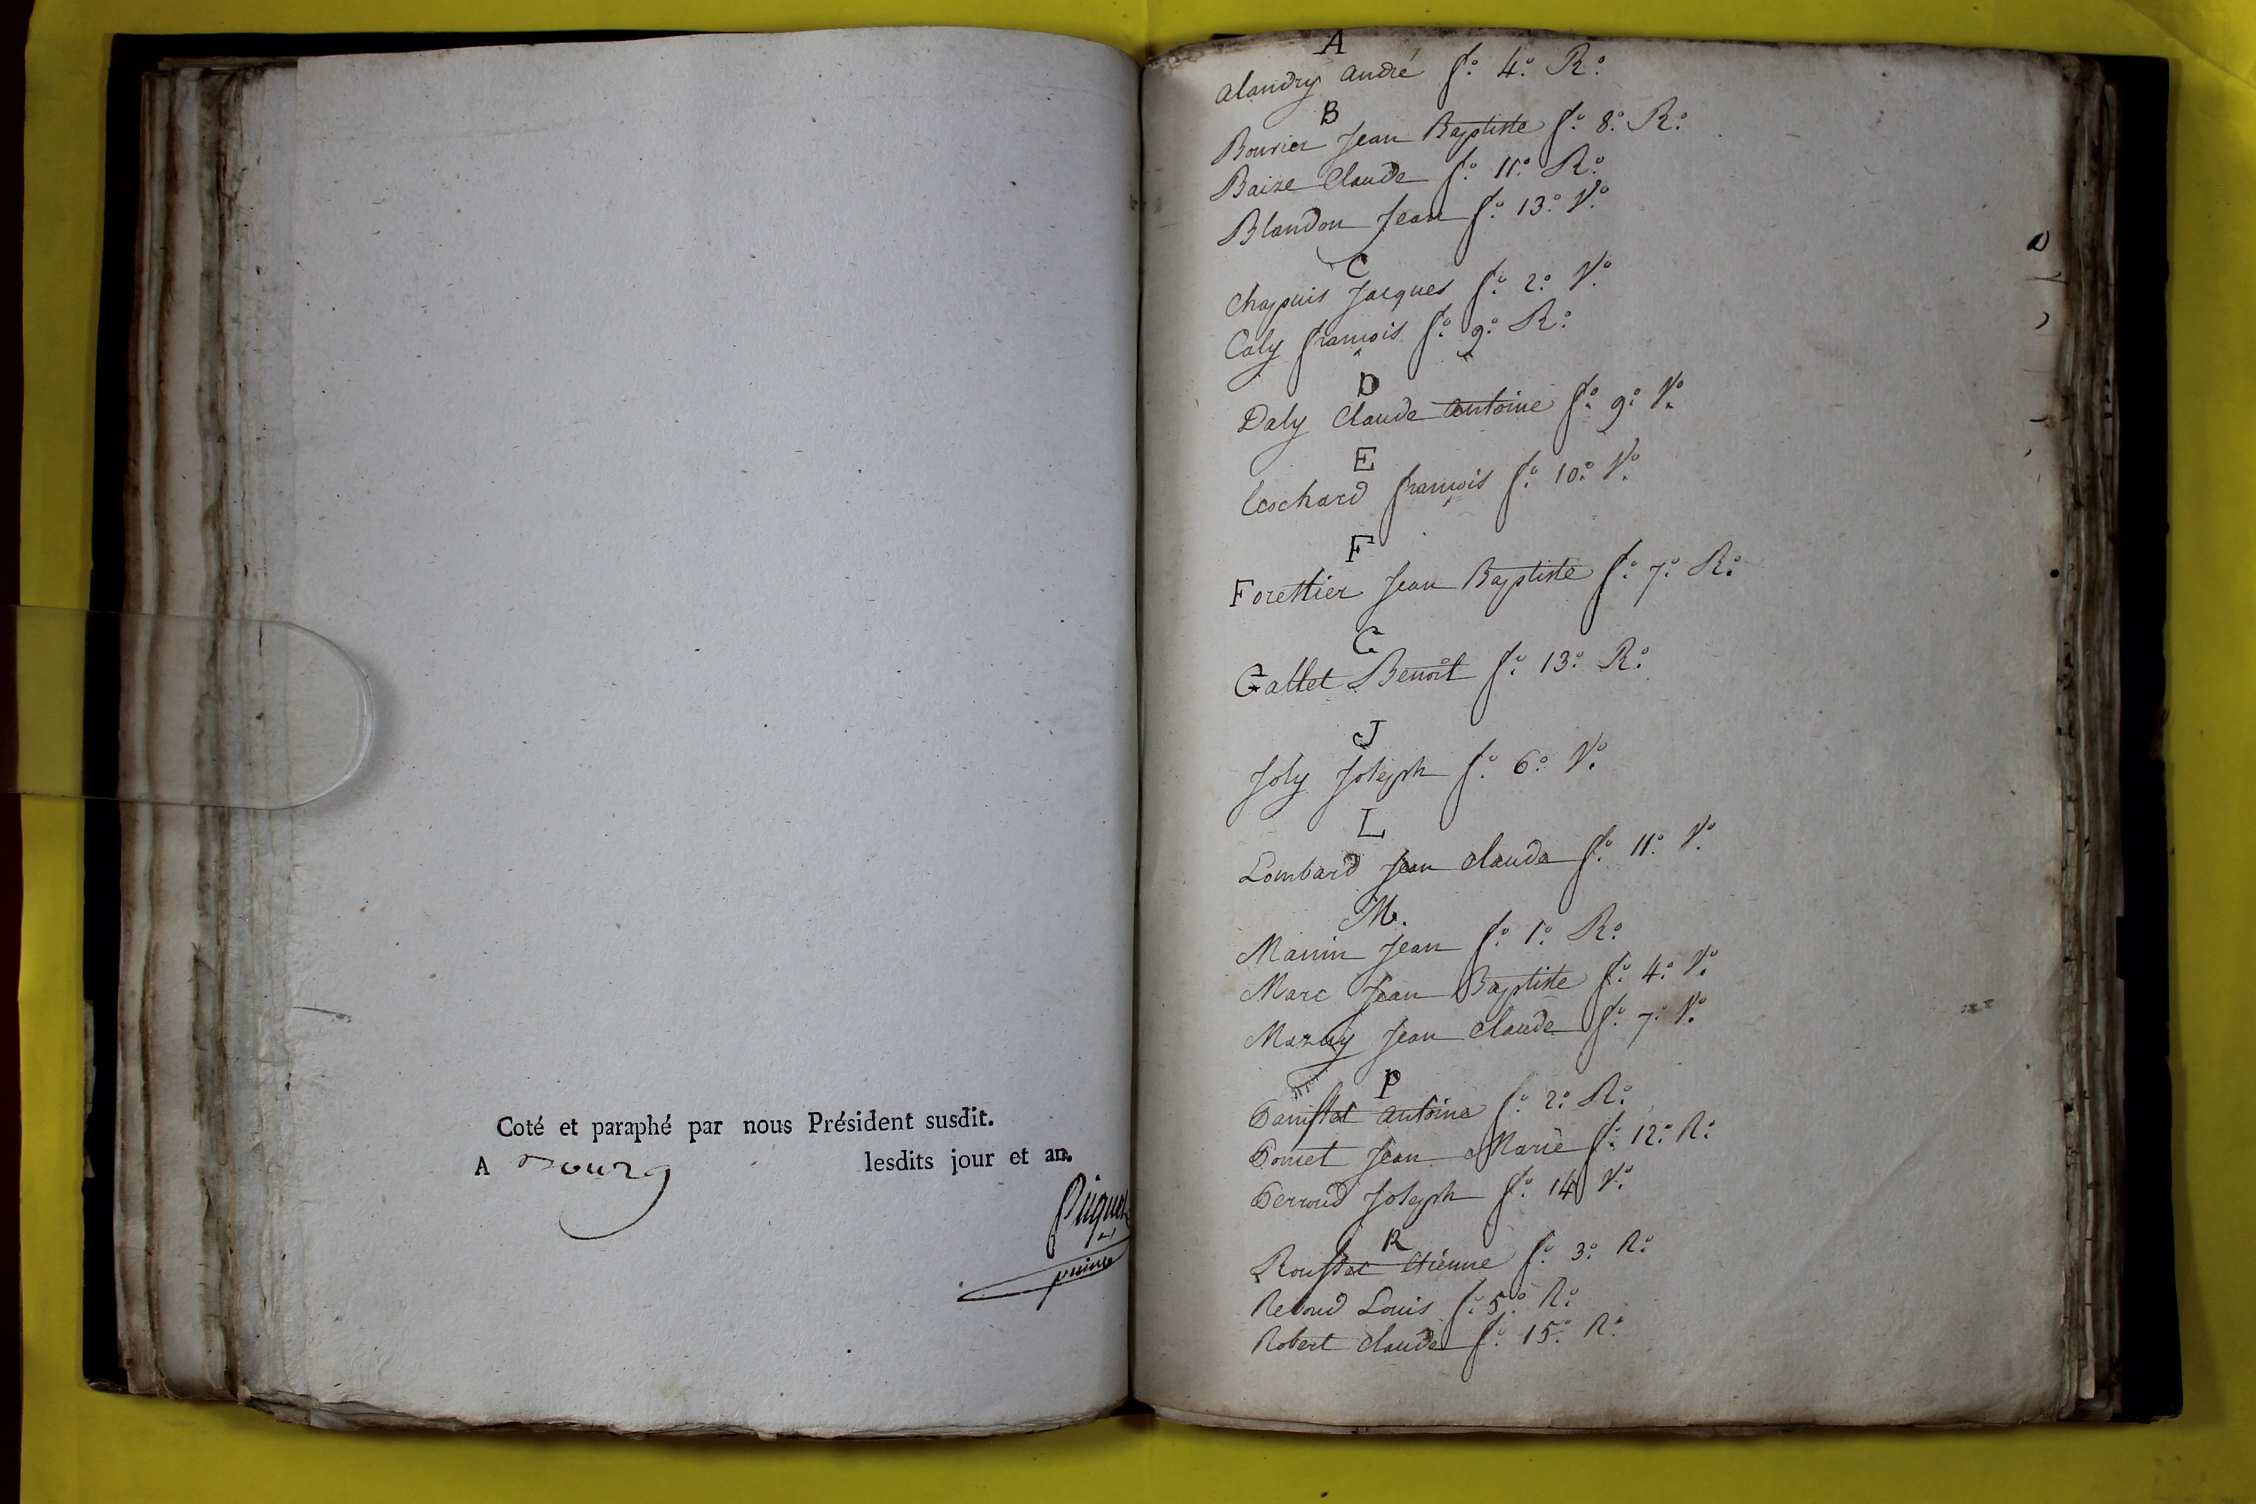 Coté et paraphé par nous Président susdit.
A Bourg lesdits jour et an.
A
alandry andré f.º 4.º R.º
B
Bouvier Jean Baptiste f.º 8.º R.º
Baize Claude f.º 11.º R.º
Blandon Jean f.º 13.º V.º
C
Chapuis Jacques f.º 2.º V.º
Caly françois f.º 9.º R.º
D
Daly Claude antoine f.º 9.º V.º
E
Eschard françois f.º 10.º V.º
F
Forettier Jean Baptiste f.º 7.º R.º
G
Gallet Benoît f.º 13.º R.º
J
Joly Joseph f.º 6.º V.º
L
Lombard Jean claude f.º 11.º V.º
M.
Manin Jean f.º 1.º R.º
Marc Jean Baptiste f.º 4.º V.º
Mazuy Jean Claude f.º 7.º V.º
P
antoine f.º 2.º R.º
Poncet Jean Marie f.º 12.º R.º
Perroud Joseph f.º 14 V.º
R
Rousset Etienne f.º 3.º R.º
Revoud Louis f.º 5.º R.º
Robert claude f.º 15.º R.º